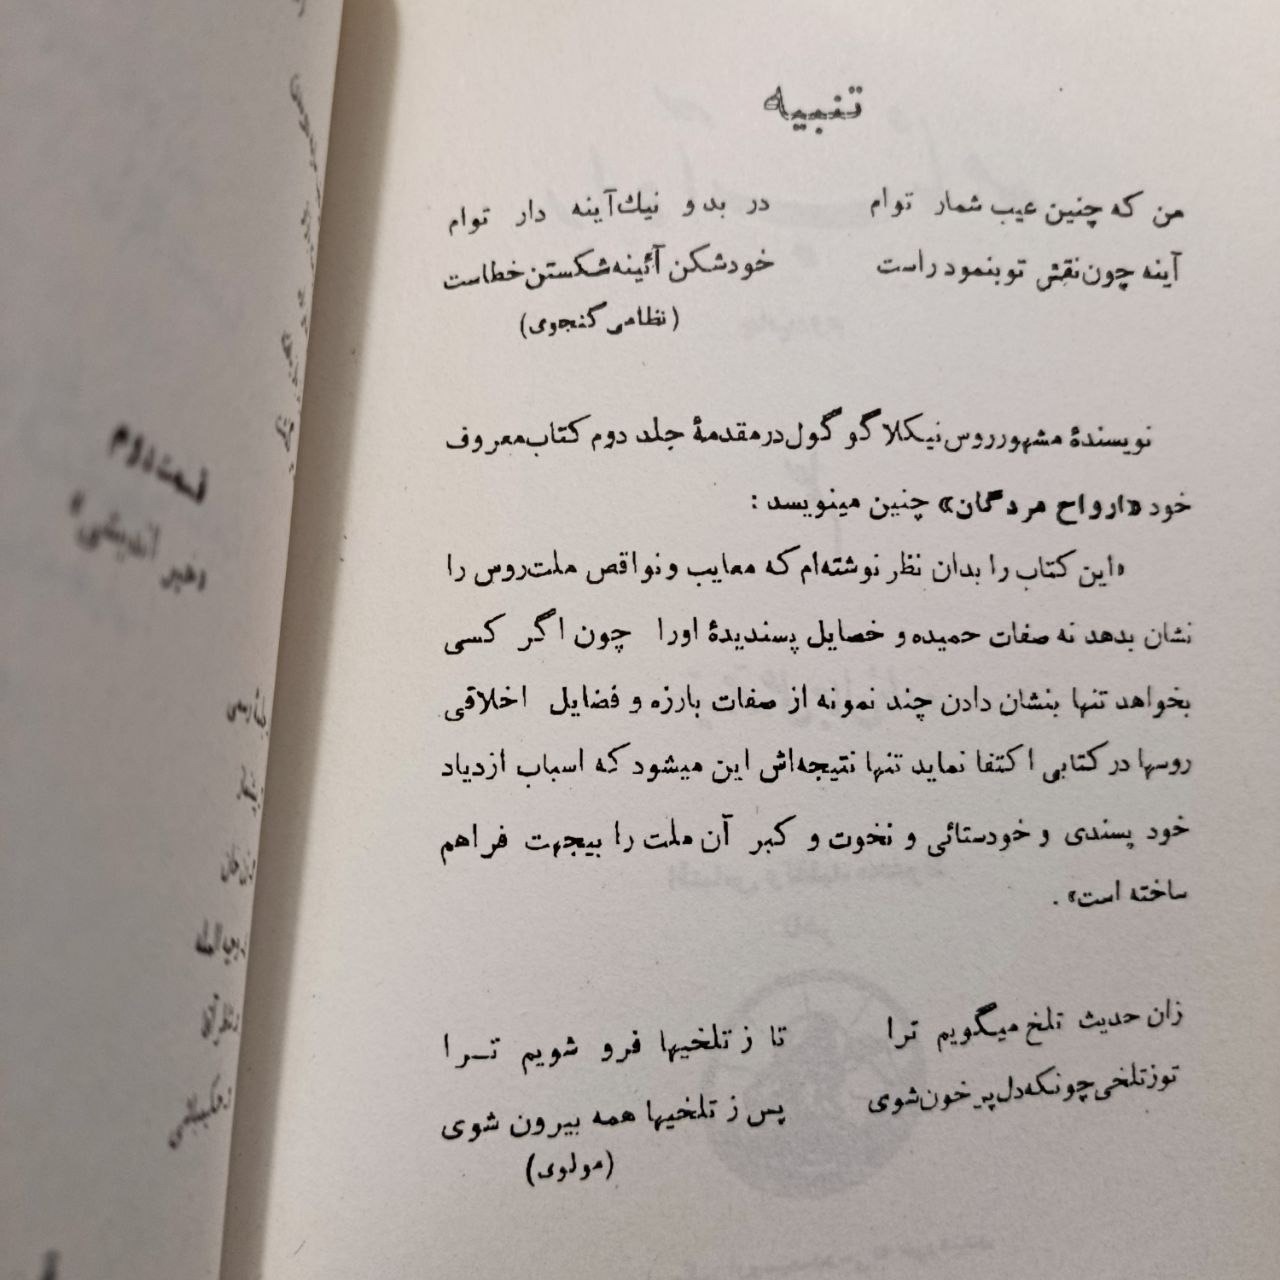 تنبیه
من که چنین عیب شمار توام در بد و نیك آینه دار توام
آینه چون نقش تو بنمود راست خود شکن آئینه شکستن خطاست
(نظامی گنجوی)
نویسندهٔ مشهور روس نیکلا گوگول در مقدمهٔ جلد دوم کتاب معروف
خود «ارواح مردگان» چنین مینویسد :
«این کتاب را بدان نظر نوشته‌ام که معایب و نواقص ملت روس را
نشان بدهد نه صفات حمیده و خصایل پسندیدهٔ اورا چون اگر کسی
بخواهد تنها بنشان دادن چند نمونه از صفات بارزه و فضایل اخلاقی
روسها در کتابی اکتفا نماید تنها نتیجه‌اش این میشود که اسباب ازدیاد
خود پسندی و خودستائی و نخوت و کبر آن ملت را بیجهت فراهم
ساخته است» .
زان حدیث تلخ میگویم ترا تا ز تلخیها فرو شویم ترا
تو ز تلخی چونکه دل پر خون شوی پس ز تلخیها همه بیرون شوی
(مولوی)
قسمت دوم